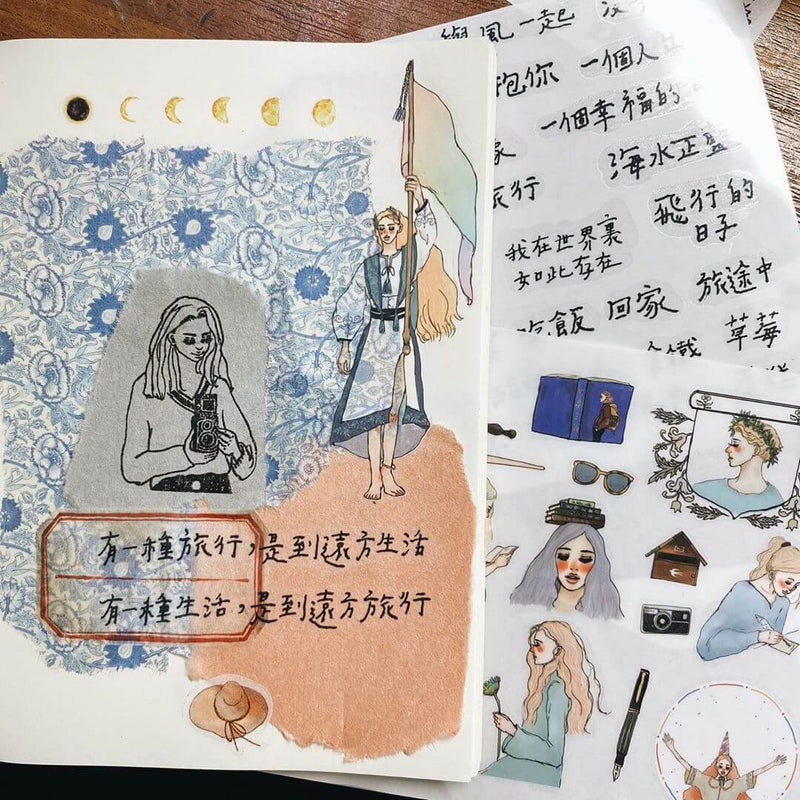 有一種旅行，是到遠方生活
有一種生活，是到遠方旅行
風一起
抱你
一個人
一個幸福的
海水正藍
旅行
飛行的
日子
我在世界裏
如此存在
吃飯
回家
旅途中
草莓